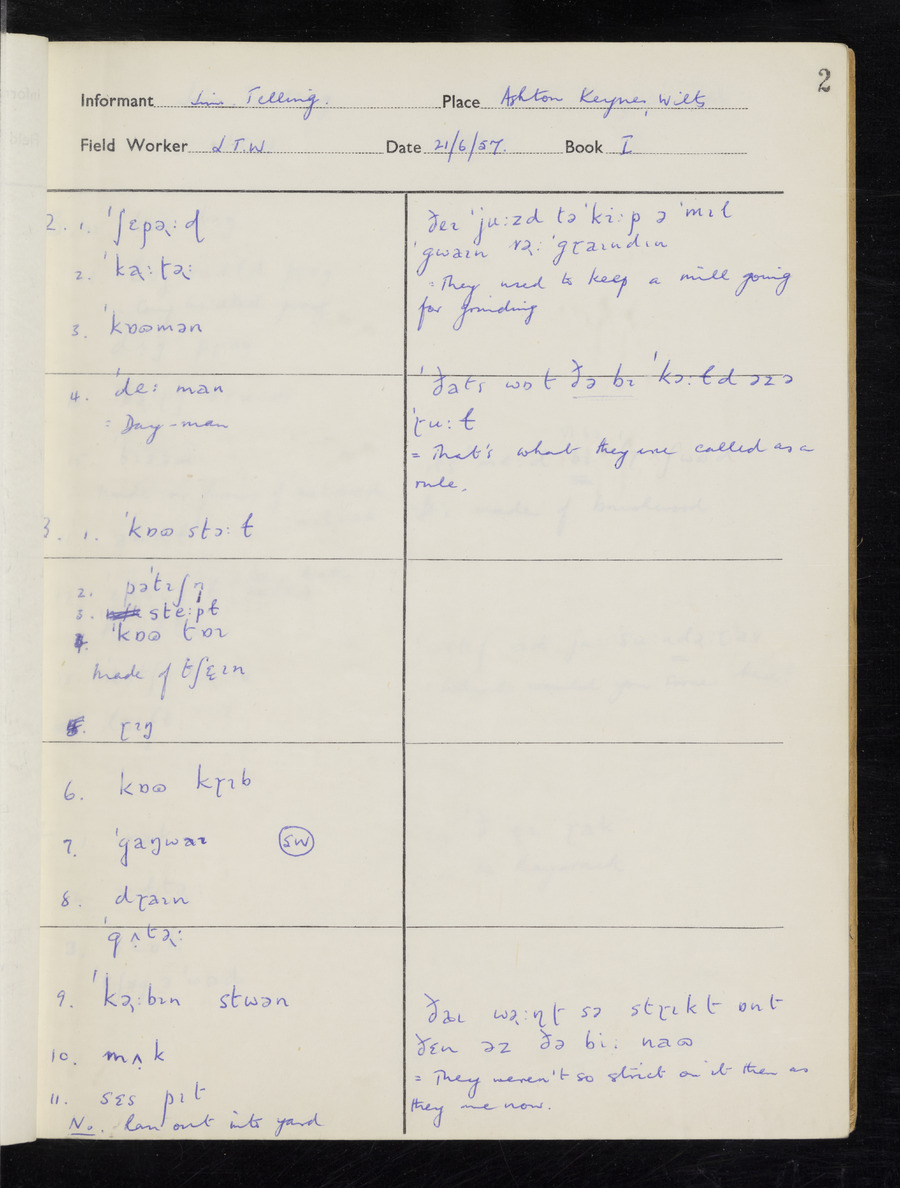 2
Informant Jim Telling. Place Ashton Keynes, Wilts
Field Worker J.T.W. Date 21/6/57. Book I
2. 1. ˈʃɛpəɽːd
2. ˈkaɽːtəɽː
3. ˈkɒɷmən
4. ˈdeː man
= Day-man
3. 1. ˈkɒɷ stɔːɫ
2. pəˈtɪʃn̩
3. steːpɫ
4. ˈkɒɷ tɒɪ
made of tʃɛ̨ɪn
5. ɽɪŋ
6. kɒɷ kɽɪb
7. ˈgaŋwaɪ SW
8. dɽaɪn
ˈgʌ̨təɽː
9. ˈkəɽːbɪn stwən
10. mʌ̨k
11. sɛs pɪt
No. Ran out into yard
ðeɪ ˈjuːzd tə ˈkiːp ə ˈmɪɫ
ˈgwaɪn vəɽː ˈgɽaɪndɪn
= They used to keep a mill going
for grinding
ˈðats wɒt ðə bɪ ˈkɔːɫd əzə
ˈɽuːɫ
= That's what they are called as a
rule.
ðæɪ wəɽːɳʈ sə stɽɪkt ɒnt
ðɛn əz ðə biː naɷ
= They weren't so strict on it then as
they are now.